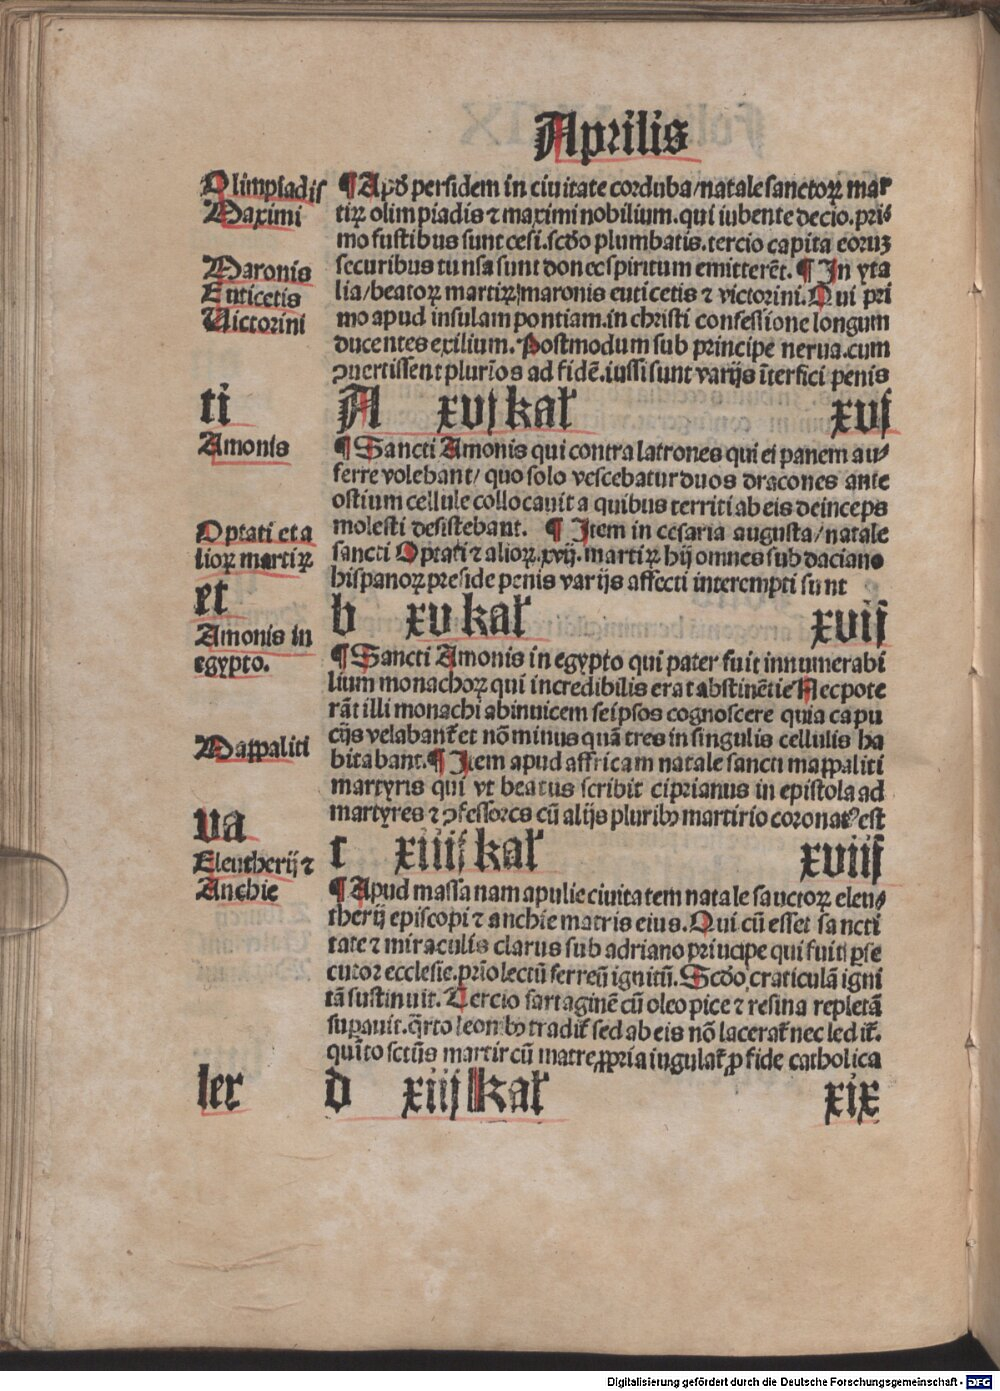 Aprilis
Olimpiadis
Maximi
Maronis
Euticetis
Victorini
¶ Apꝺ persidem in ciuitate corduba/natale sanctoꝝ mar
tiꝝ olimpiadis ⁊ maximi nobilium.qui iubente decio.pri⸗
mo fustibus sunt cesi.scꝺo plumbatis.tercio capita eoruꝫ
securibus tunsa sunt donec spiritum emitterēt. ¶ In yta
lia/beatoꝝ martiꝝ maronis euticetis ⁊ victorini.Qui pri
mo apud insulam pontiam.in christi confessione longum
ducentes exilium. Postmodum sub principe nerua.cum
ꝯuertissent plurīos ad fidē.iussi sunt varijs īterfici penis
ti A xvj kaƚ xvj
Amonis
Optati et a
lioꝝ martiꝝ
¶ Sancti Amonis qui contra latrones qui ei panem au⸗
ferre volebant/ quo solo vescebatur duos dracones ante
ostium cellule collocauit a quibus territi ab eis deinceps
molesti desistebant. ¶ Item in cesaria augusta/natale
sancti Optati ⁊ alioꝝ.xvij.martiꝝ hij omnes sub daciano
hispanoꝝ preside penis varijs affecti interempti sunt
et b xv kaƚ xvij
Amonis in
egypto.
Mappaliti
¶ Sancti Amonis in egypto qui pater fuit innumerabi
lium monachoꝝ qui incredibilis erat abstinētie Nec pote
rāt illi monachi abinuicem seipsos cognoscere quia capu
cijs velabant᷑ et nō minus quā tres in singulis cellulis ha
bitabant. ¶ Item apud affricam natale sancti mappaliti
martyris qui vt beatus scribit ciprianus in epistola ad
martyres ⁊ ꝯfessores cū alijs pluribꝰ martirio coronatꝰ est
ua c xiiij kaƚ xviij
Eleutherij ⁊
Anchie
¶ Apud massanam apulie ciuitatem natale sanctoꝝ eleu⸗
therij episcopi ⁊ anchie matris eius.Qui cū esset sancti
tate ⁊ miraculis clarus sub adriano principe qui fuit ꝑse
cutor ecclesie.prīo lectū ferreū ignitū.Scꝺo craticulā igni
tā sustinuit. Tercio sartaginē cū oleo pice ⁊ resina repletā
suꝑauit.q̄rto leonibꝰ tradit᷑ sed ab eis nō lacerat᷑ nec ledit᷑.
quīto sctūs martir cū matre ꝓpria iugulat᷑ ꝓ fide catholica
ler d xiij kaƚ xix
Digitalisierung gefördert durch die Deutsche Forschungsgemeinschaft - DFG